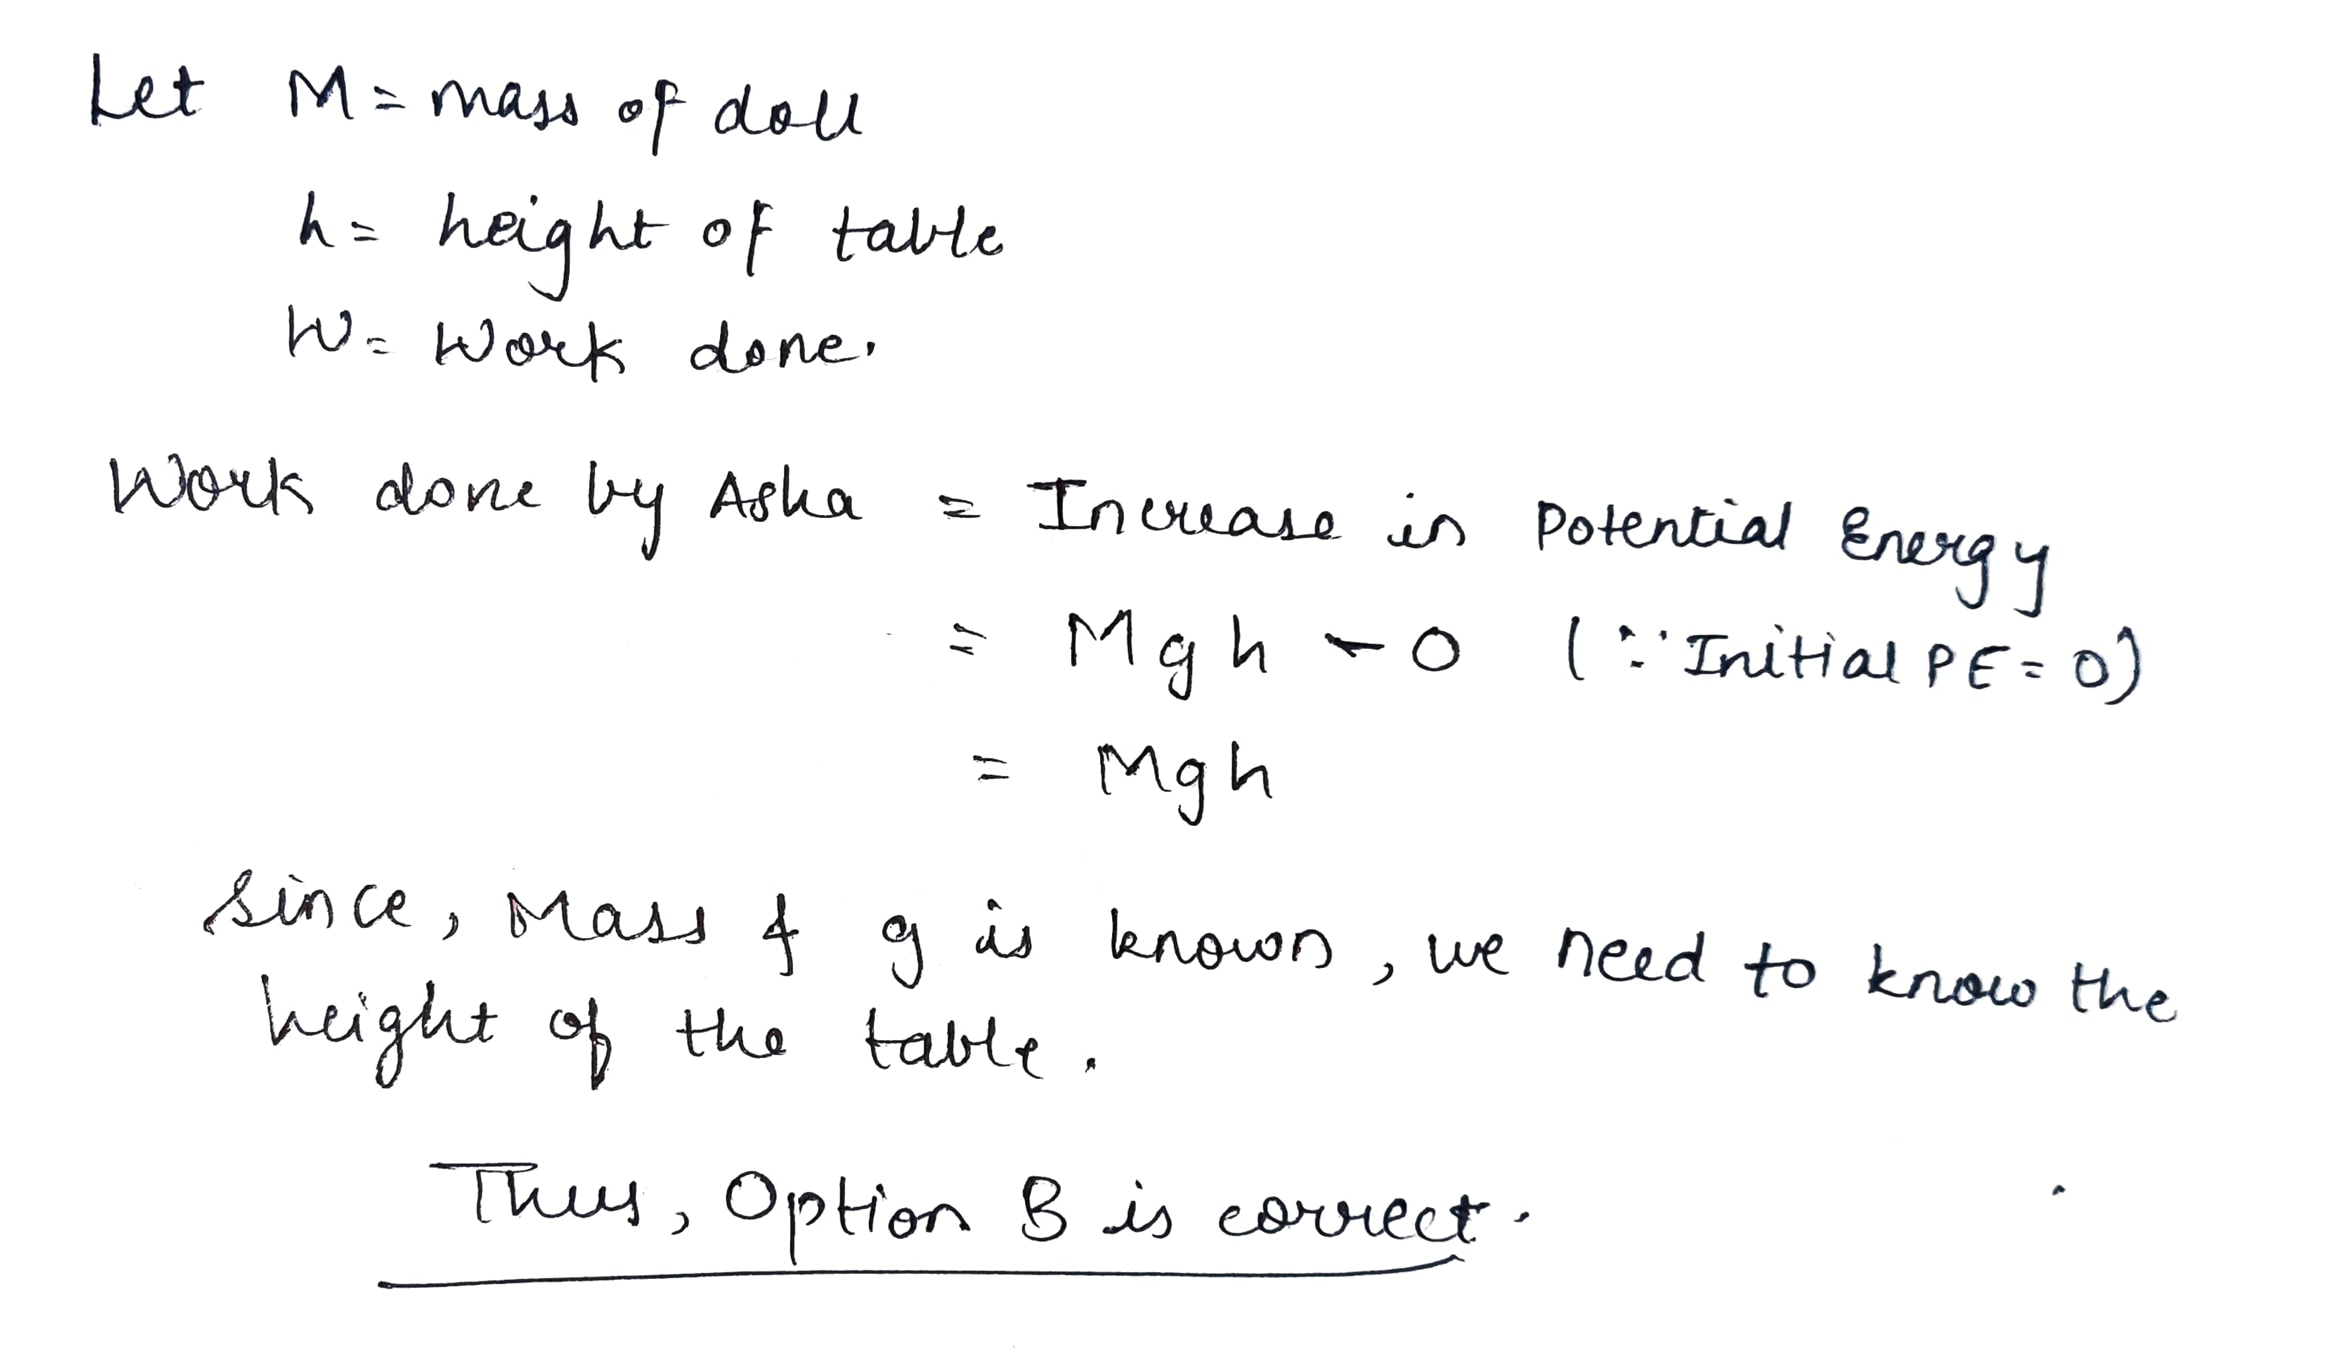 Let M = mass of doll
h = height of table
W = Work done.
Work done by Asha = Increase in Potential Energy
= Mgh - 0 (∵ Initial PE = 0)
= Mgh
Since, Mass & g is known, we need to know the
height of the table.
Thus, Option B is correct.